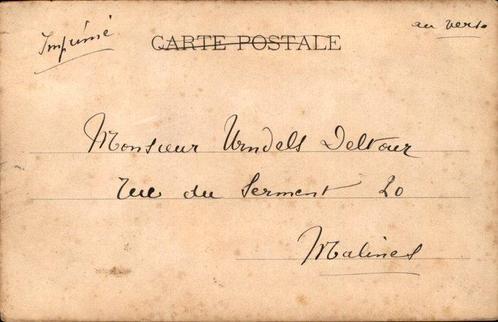 Imprimé
au verso
CARTE POSTALE
Monsieur Deltour
rue du Serment 20
Malines